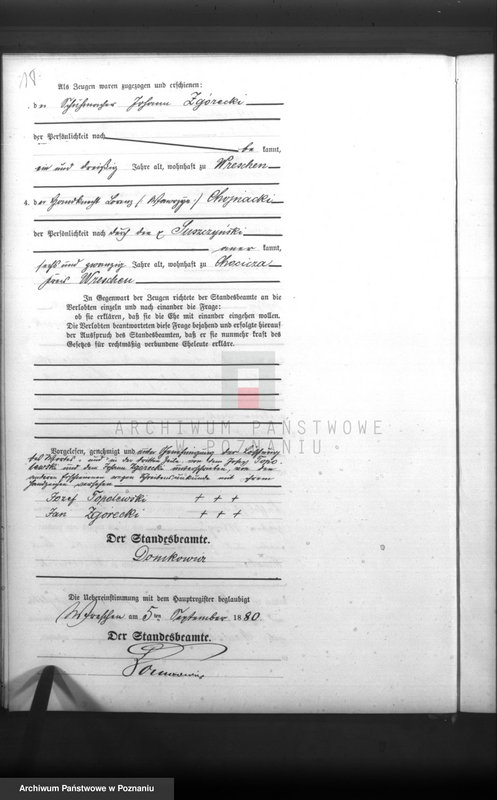 Als Zeugen waren zugezogen und erschienen:
der Schuhmacher Johann Zgórecki
der Persönlichkeit nach
be kannt,
ein und dreißig Jahre alt, wohnhaft zu Wreschen
4. der Lorenz (Wawrzyn) Chojnacki
der Persönlichkeit nach durch den p. Suszczyński
aner kannt,
sechs und zwanzig Jahre alt, wohnhaft zu
Kreis Wreschen
In Gegenwart der Zeugen richtete der Standesbeamte an die
Verlobten einzeln und nach einander die Frage:
ob sie erklären, daß sie die Ehe mit einander eingehen wollen.
Die Verlobten beantworteten diese Frage bejahend und erfolgte hierauf
der Ausspruch des Standesbeamten, daß er sie nunmehr kraft des
Gesetzes für rechtmäßig verbundene Eheleute erkläre.
ARCHIWUM PAŃSTWOWE
W POZNANIU
Vorgelesen, genehmigt und unter Genehmigung der Löschung
und in der dritten Zeile von dem Josef Topo-
lewski und dem Johann Zgorecki unterschrieben, von den
anderen Erschienenen wegen Schreibensunkunde mit ihrem
Handzeichen versehen
Jozef Topolewiki + + +
Jan Zgorecki + + +
Der Standesbeamte.
Die Uebereinstimmung mit dem Hauptregister beglaubigt
Wreschen am 5ten September 1880
Der Standesbeamte.
Archiwum Państwowe w Poznaniu